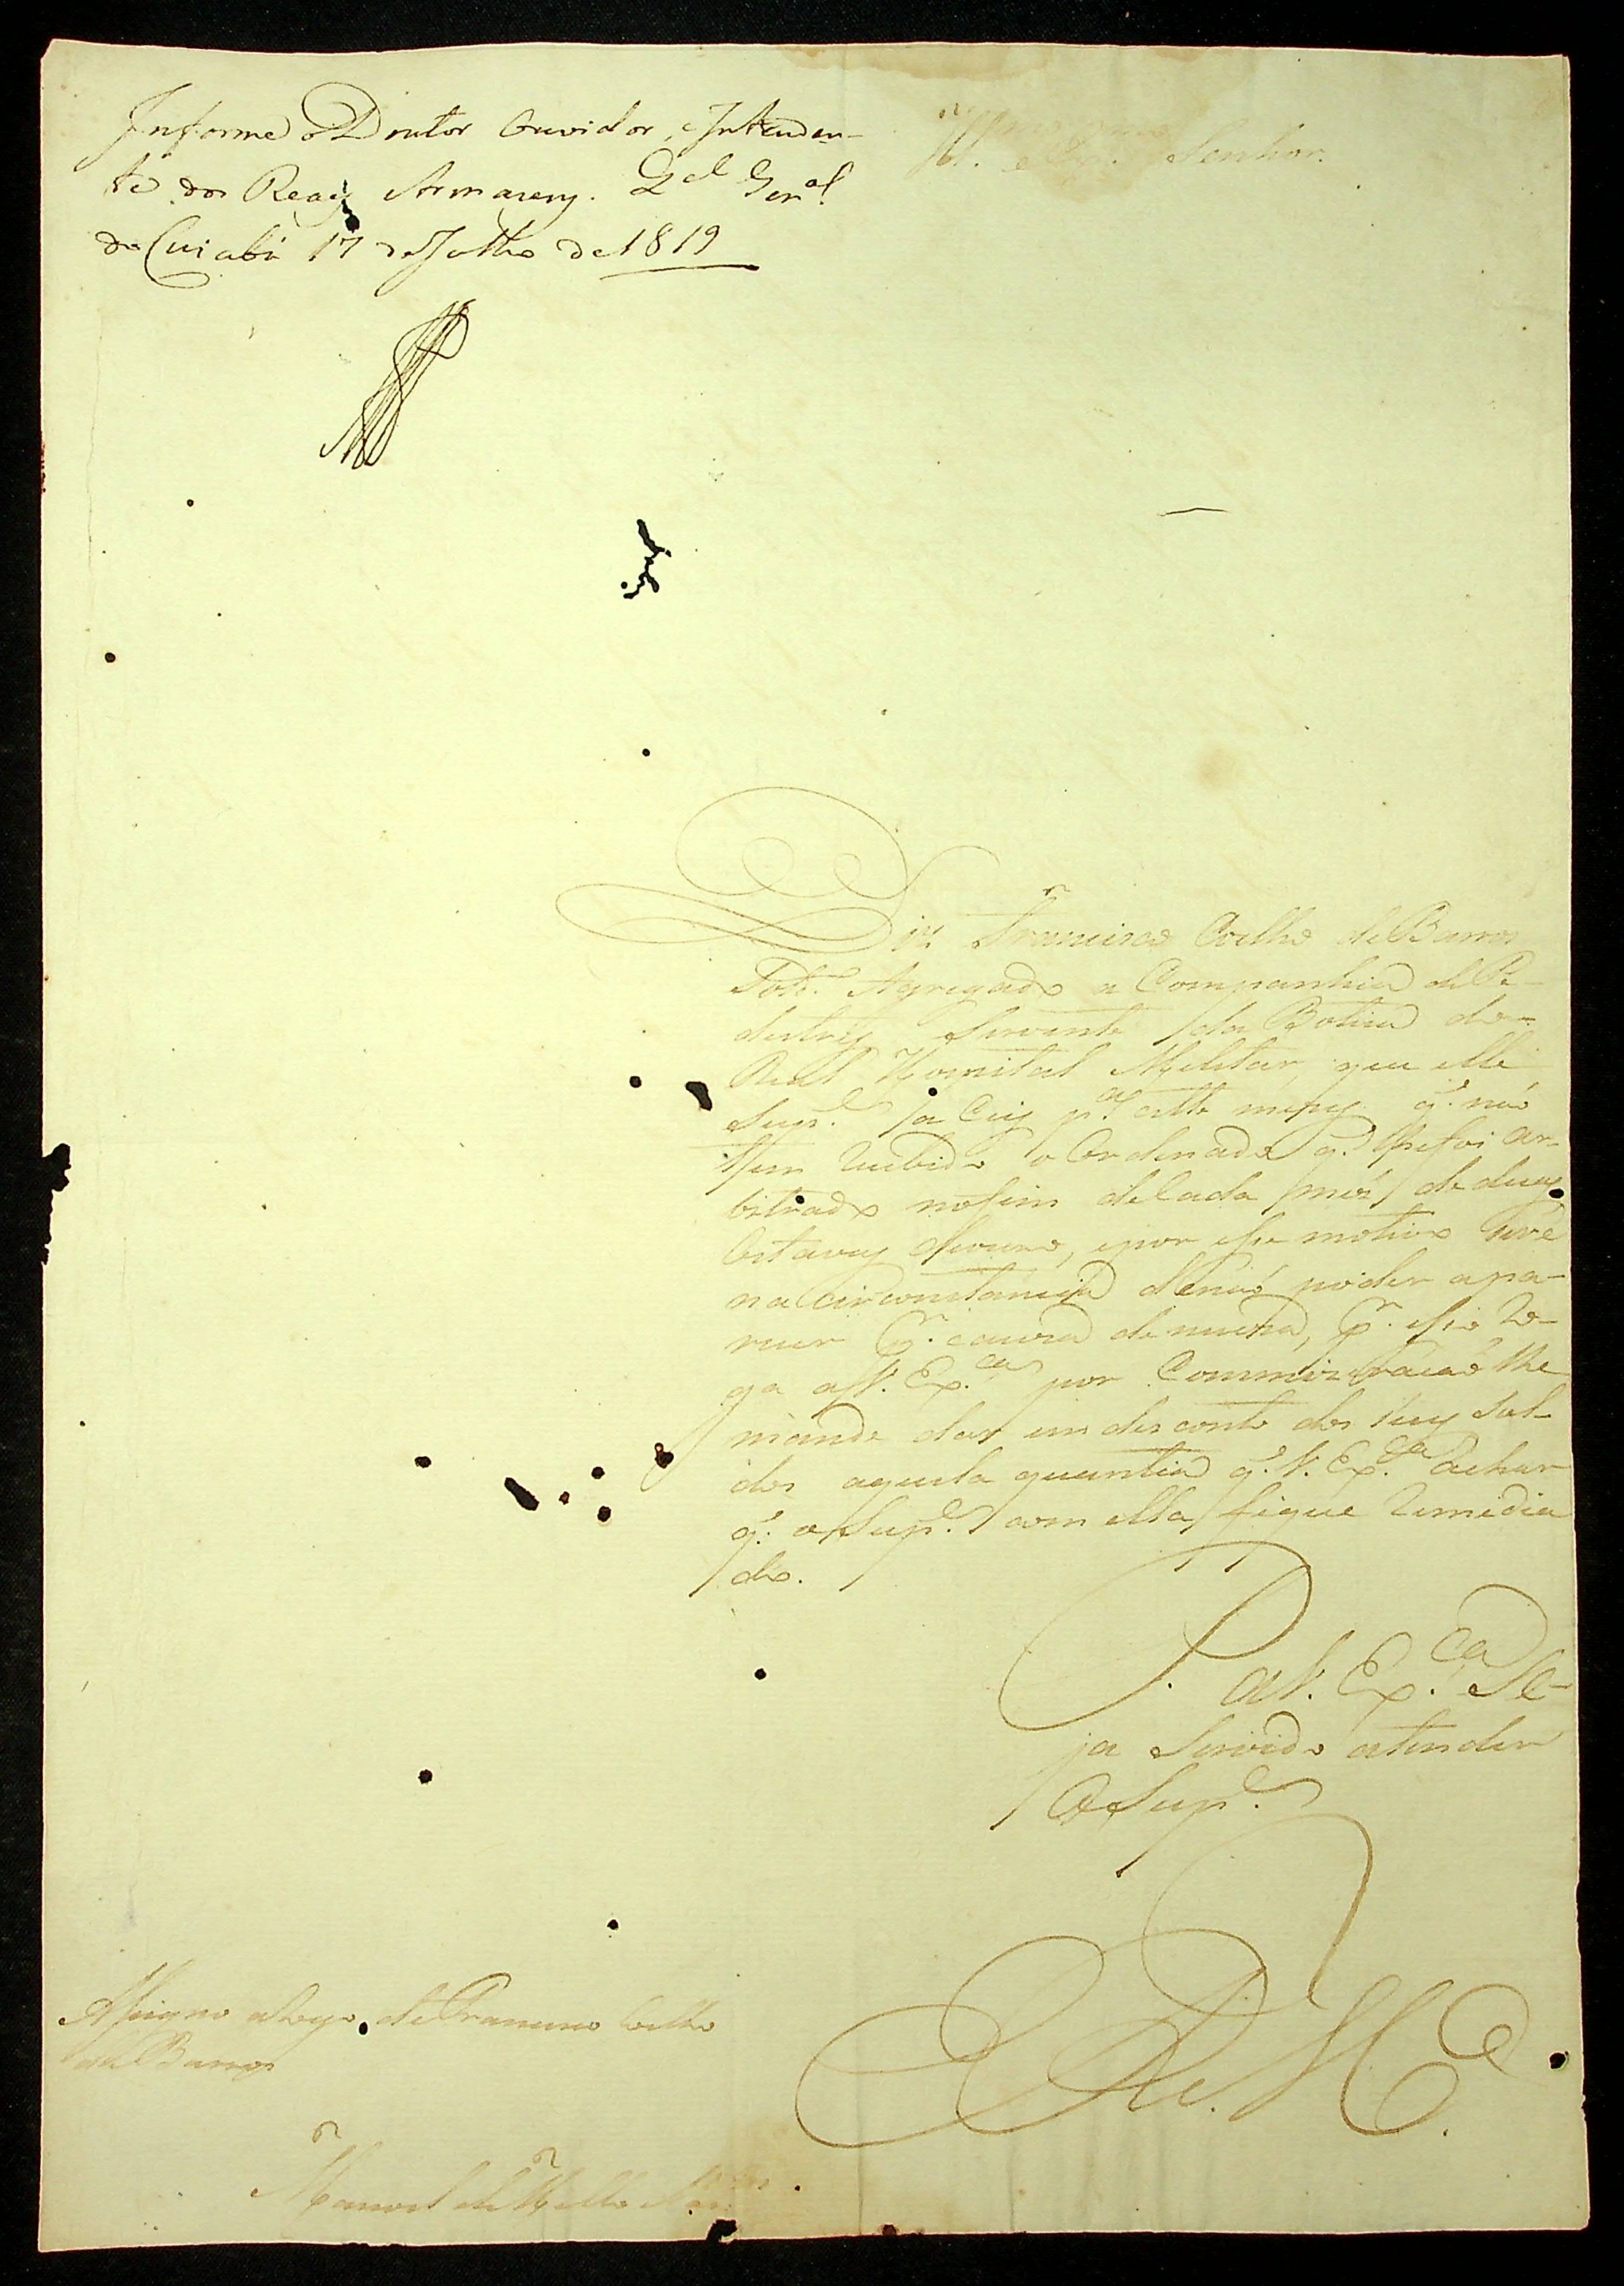 Informe o Doutor Ouvidor, e Intenden-
te dos Reaiz Armazens. Qel Genal
do Cuiabá 17 de Julho de 1819
Senhor.
Diz Francisco Coelho de Barros
Agregado a Companhia de Pe-
destres Servente da Botica do
Real Hospital Militar, que elle
Supe. ja a este mezes q. não
tem recebido o Ordenado q. lhe foi ar-
bitrado no fim de Cada mez de duas
Oitavas e por esse motivo
na circonstancia de não poder apa-
recer pr. cauza de nueza, pr. isso Ro-
ga a V. Exca. por Commizeração lhe
mande dar em desconto dos seus Sol-
dos aquela quantia q. V. Exca. achar
q. o Supe. com ella fique Remedia
do.
P. a V. Exca. Se-
ja Servido atender
O Supe.
E. R. Mce.
Assigno a Rogo de Francisco Coelho
de Barros
Manoel de Mello